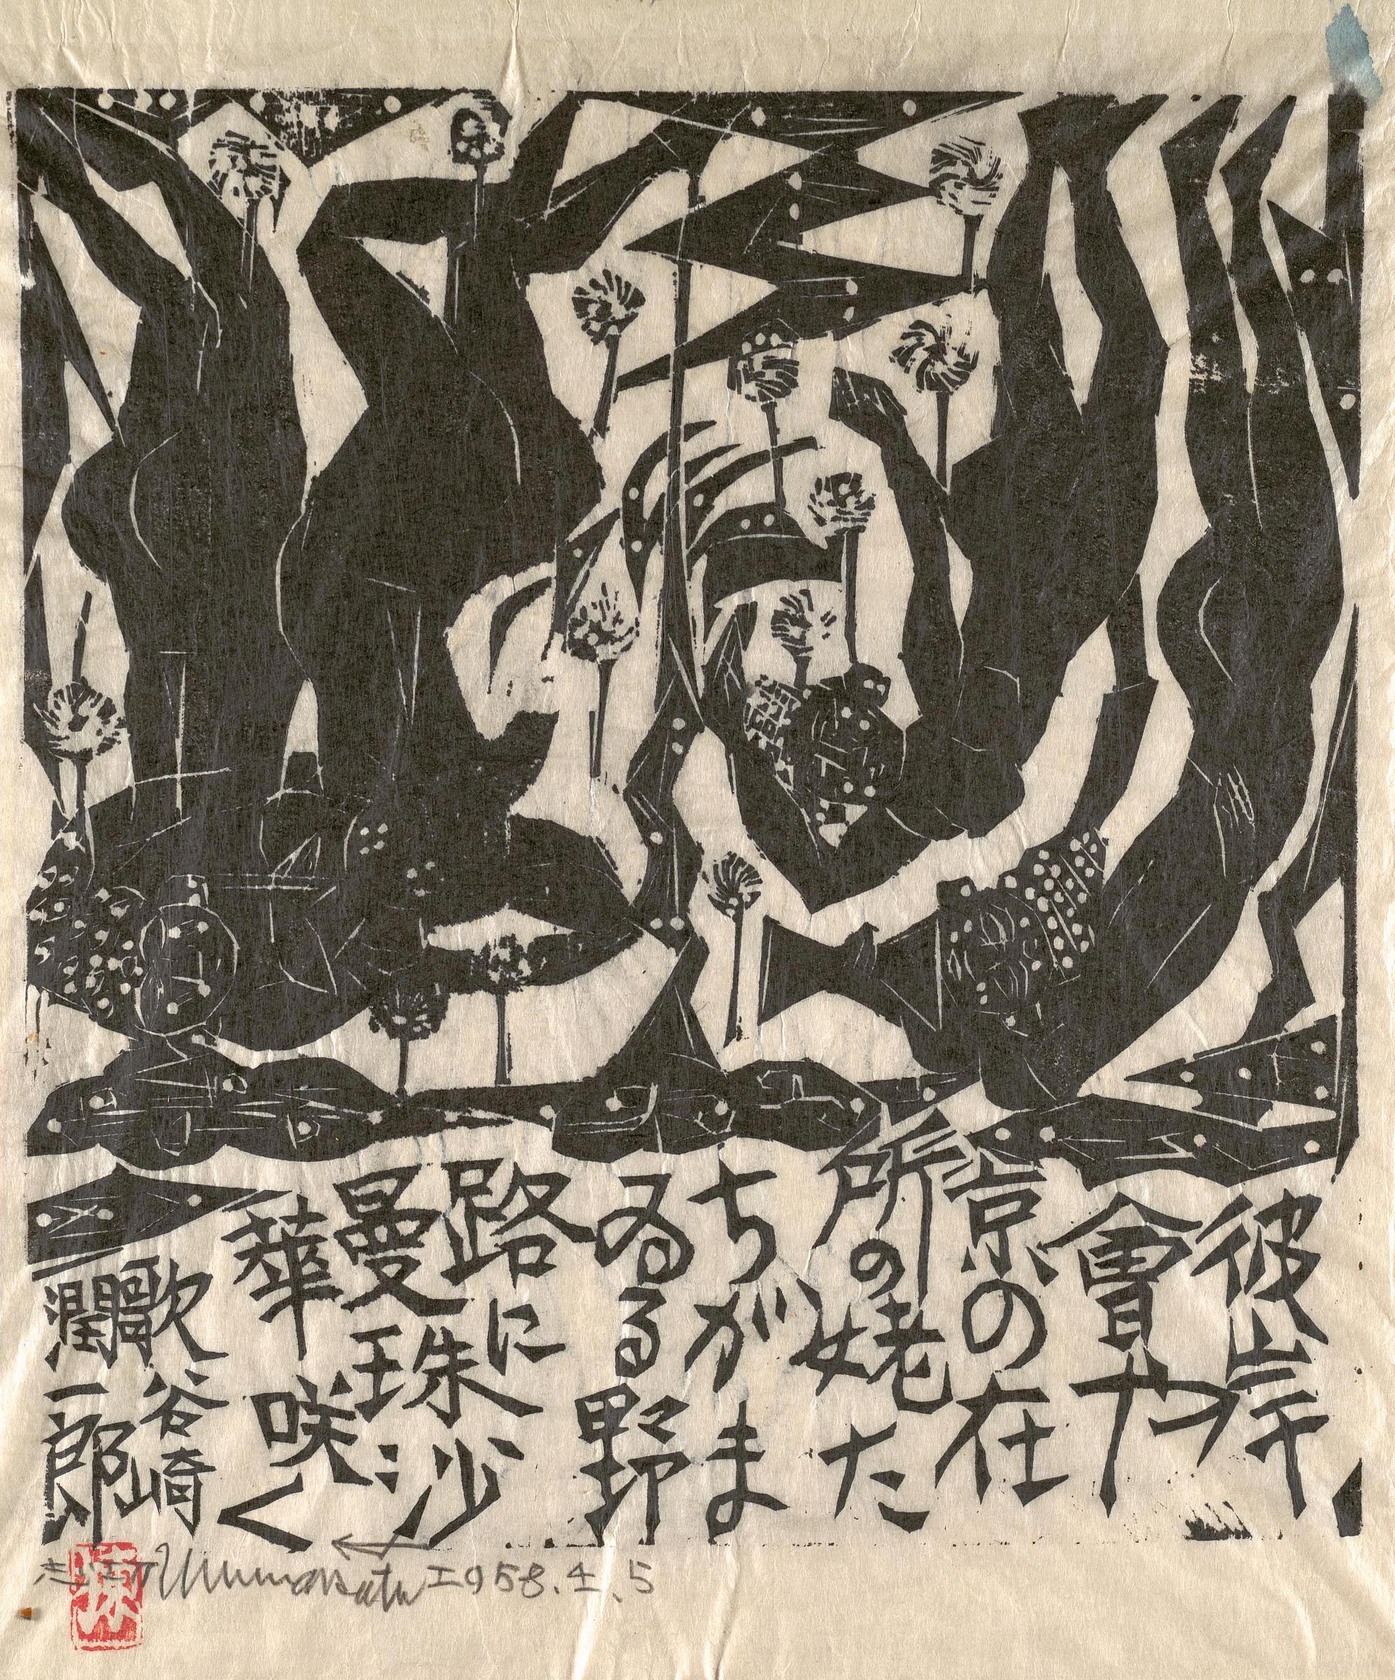 彼岸
會や
京の在
所の姥た
ちがま
ゐる野
路に
曼珠沙
華咲く
歌谷崎
潤一郎
志功 Munakata 1958.4.5